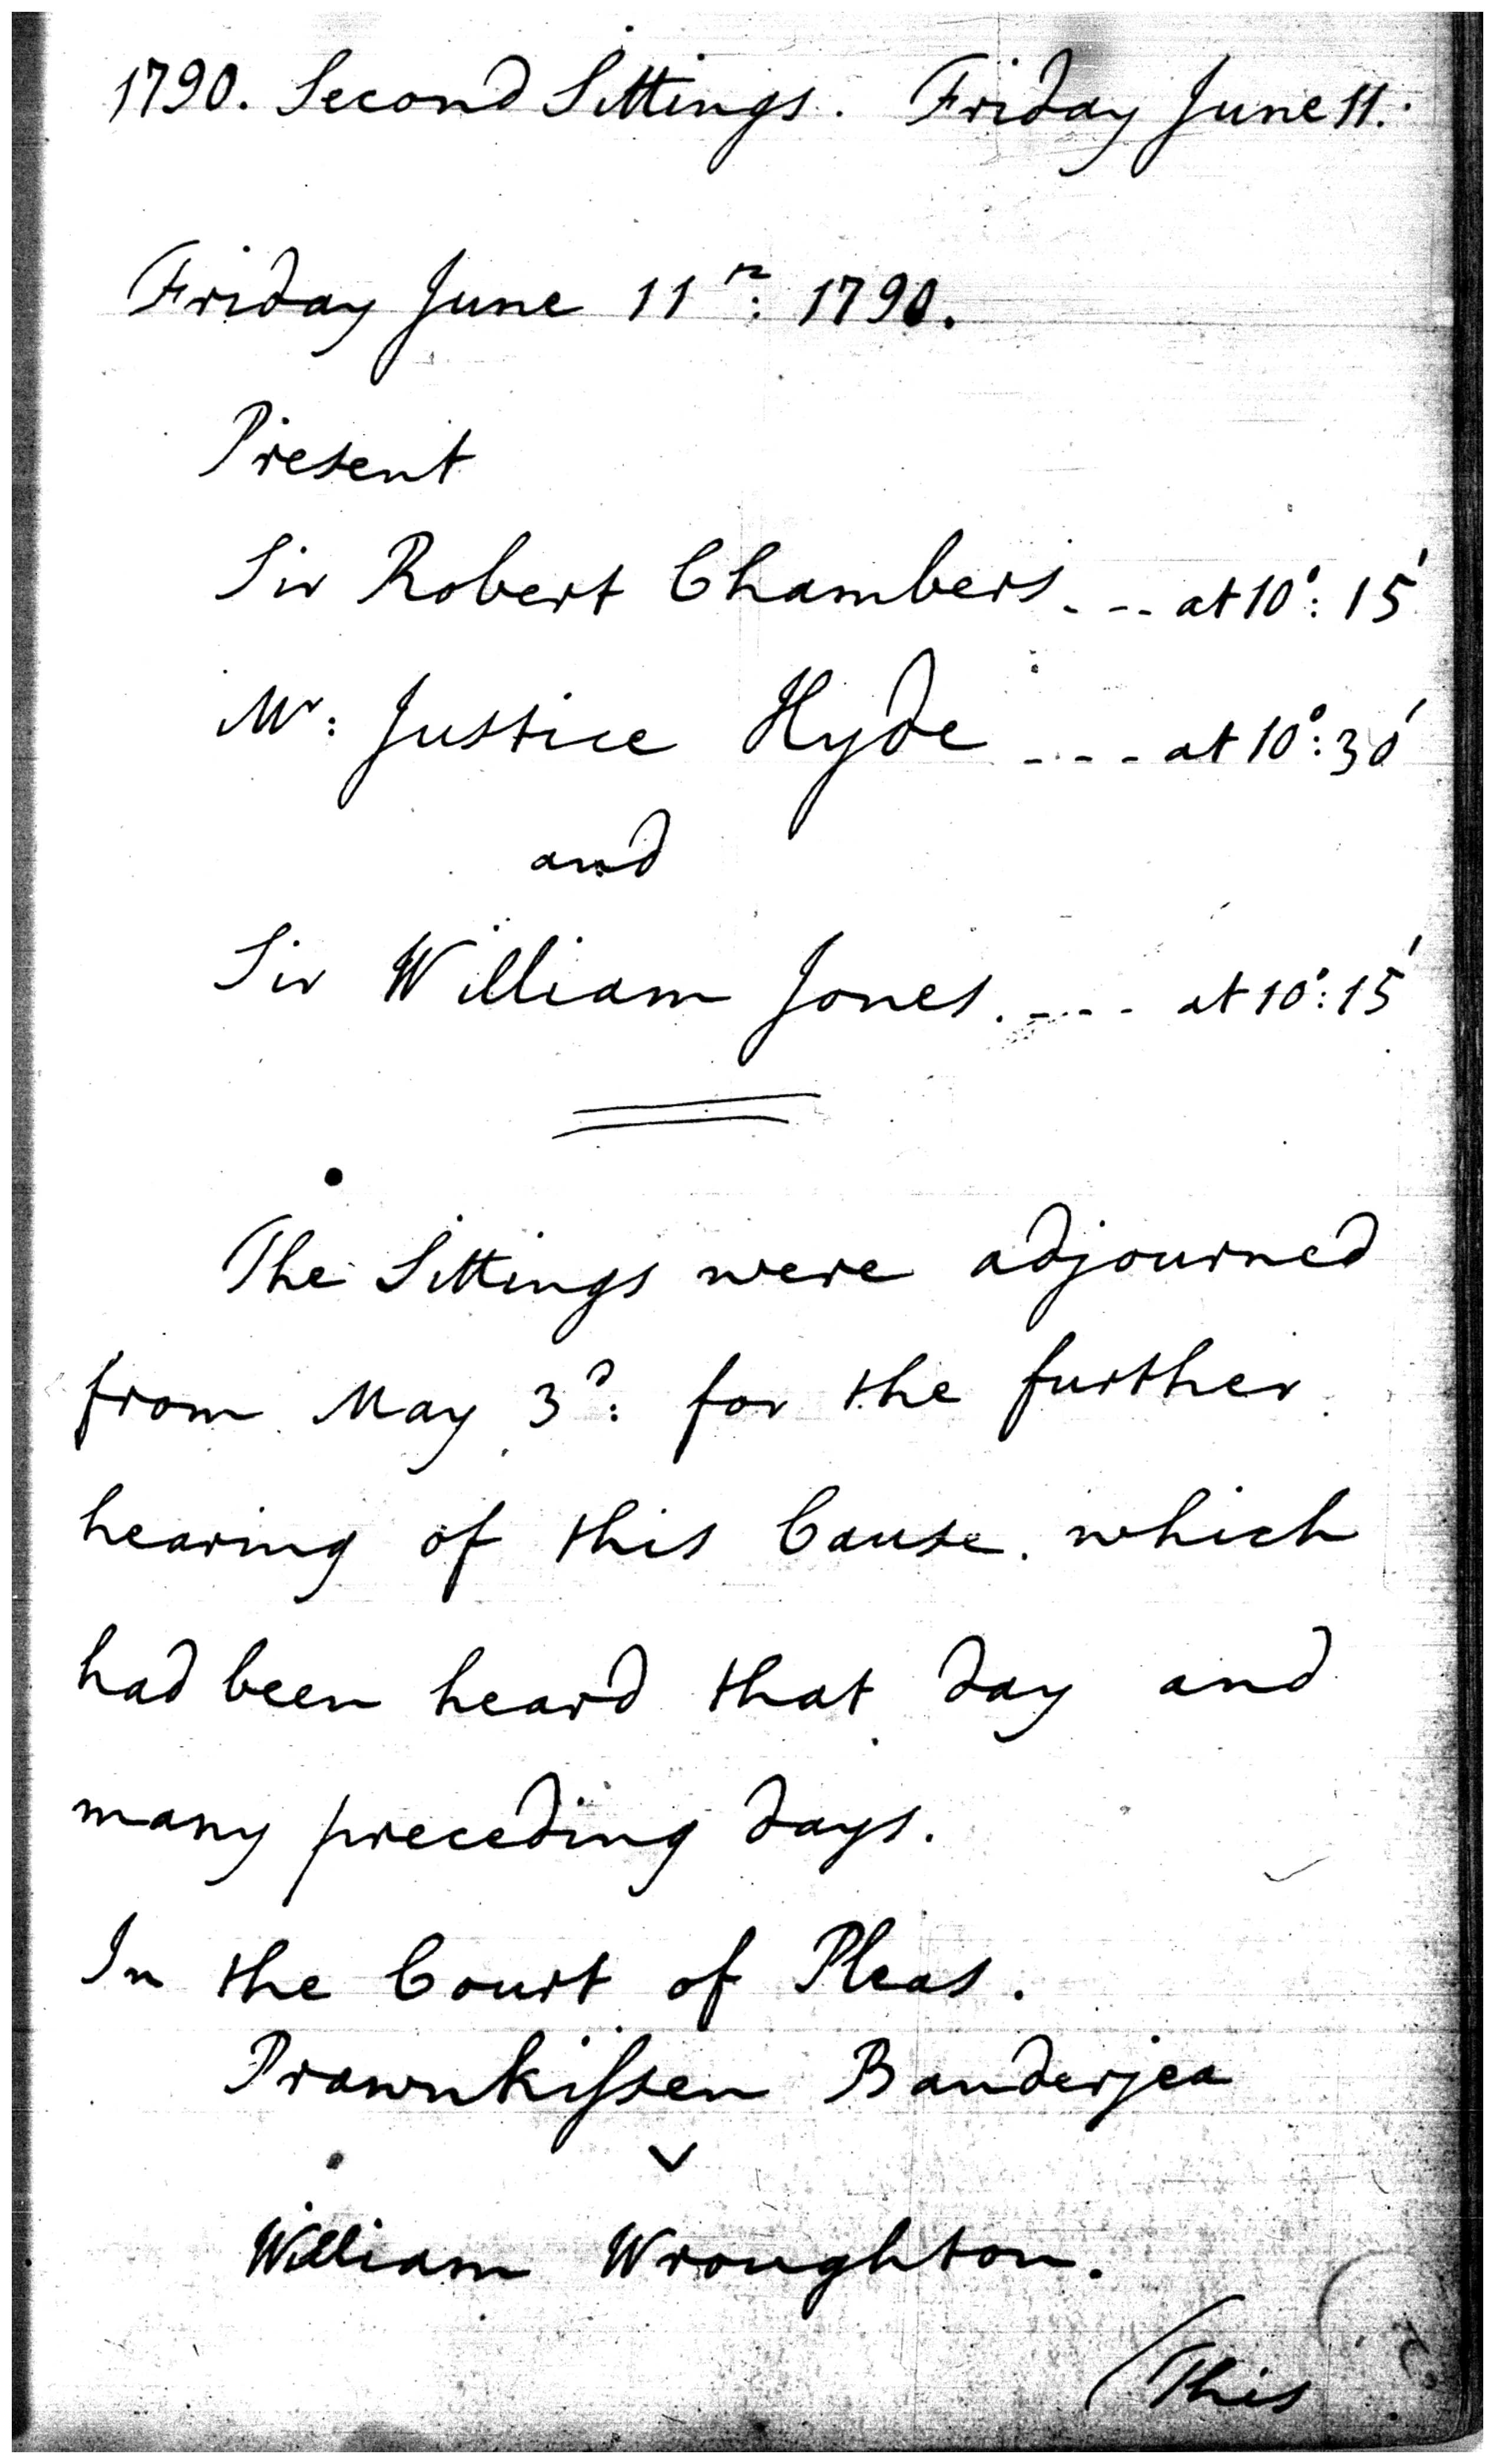 1790. Second Sittings. Friday June 11.
Friday June 11th: 1790.
Present
Sir Robert Chambers. - - - at 10°: 15'
Mr: Justice Hyde - - - - at 10°: 30'
and
Sir William Jones. - - - - at 10°: 15'
The Sittings were adjourned
from May 3d: for the further
hearing of this Cause which
had been heard that day and
many preceding days.
In the Court of Pleas.
Prawnkiſsen Banderjea
v
William Wroughton.
(This